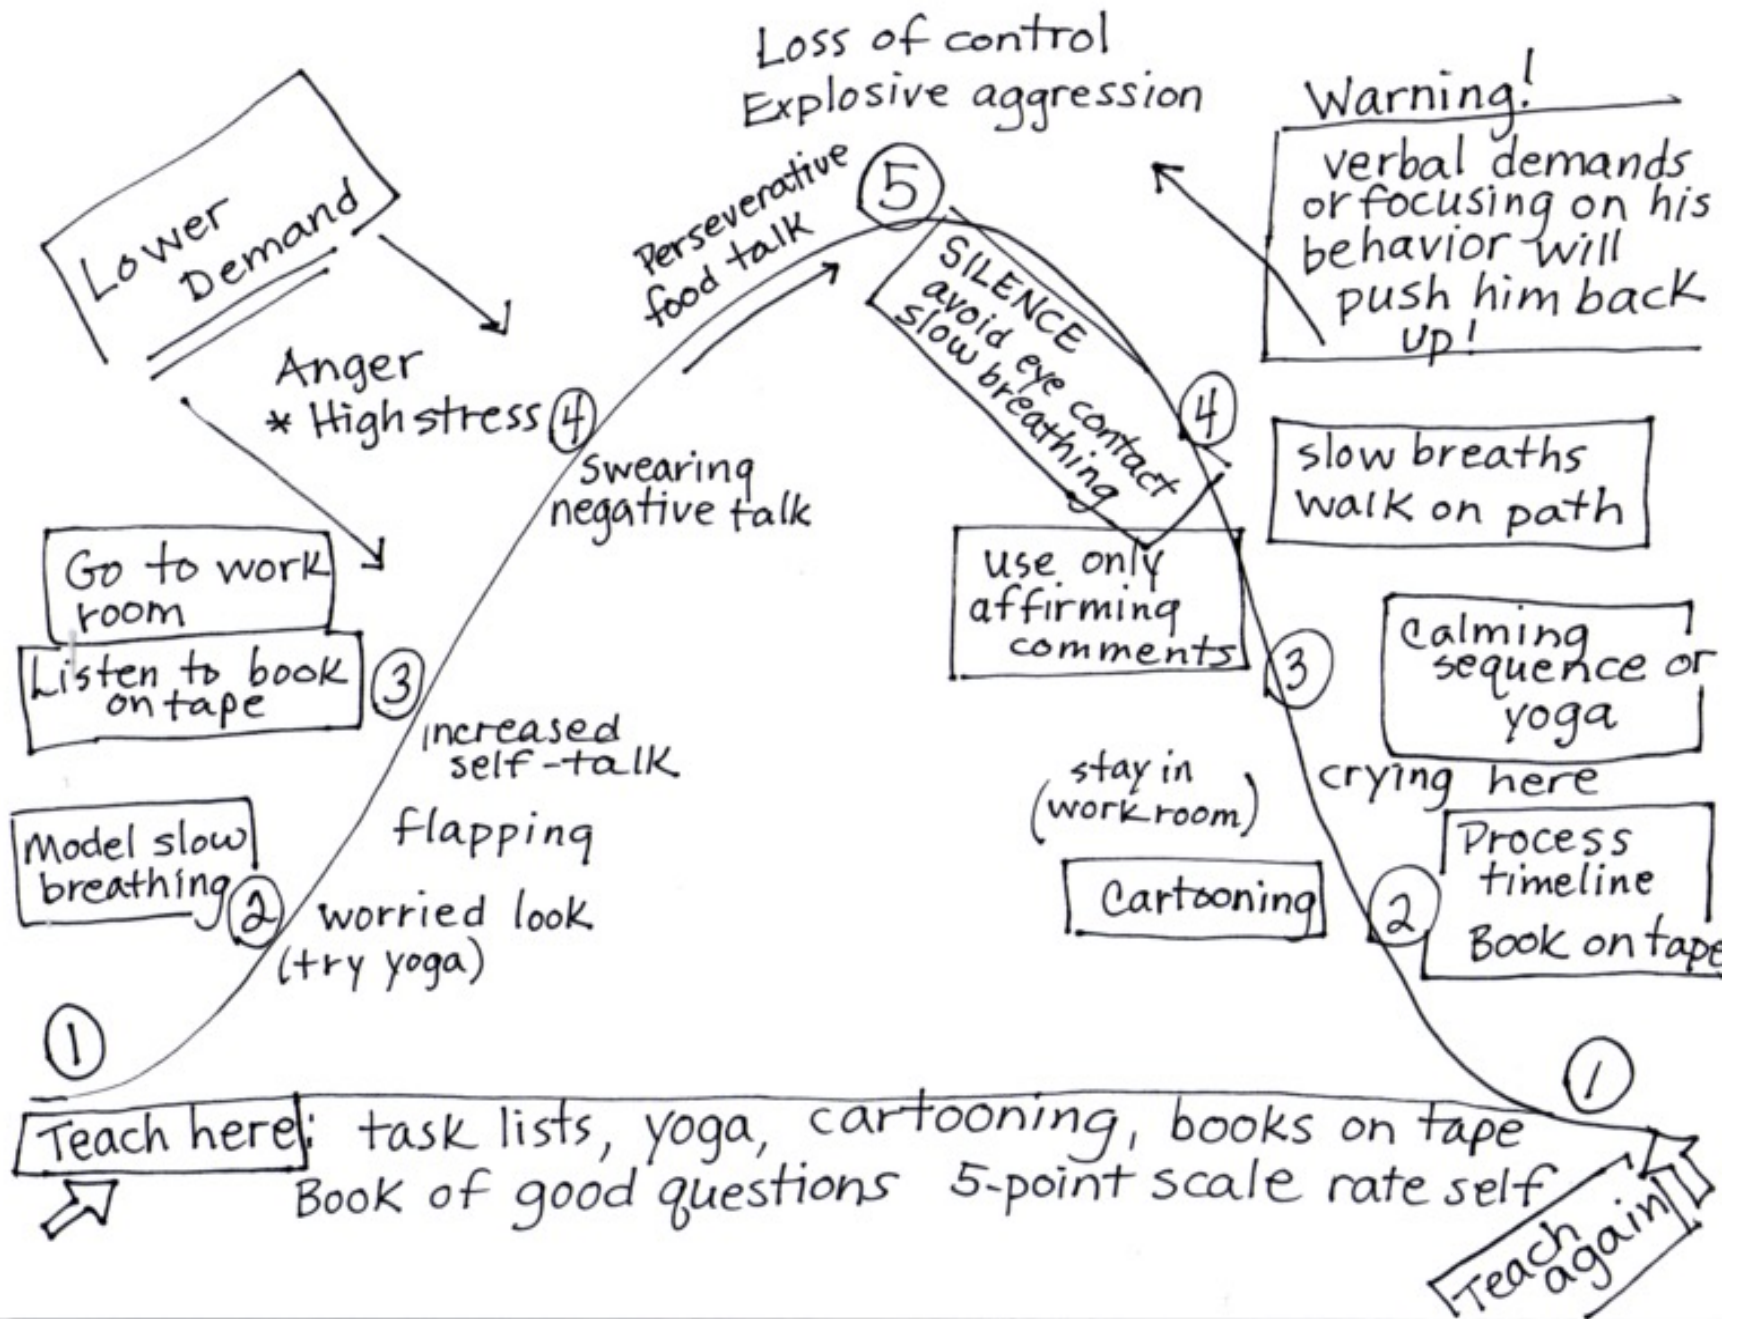 Loss of control
Explosive aggression
Warning!
verbal demands
or focusing on his
behavior will
push him back
up!
Lower
Demand
Perseverative
food talk
5
SILENCE
avoid eye contact
slow breathing
Anger
* High stress
4
swearing
negative talk
4
slow breaths
walk on path
Go to work
room
Listen to book
on tape
3
increased
self-talk
flapping
use only
affirming
comments
3
Calming
sequence or
yoga
crying here
stay in
(work room)
Model slow
breathing
2
worried look
(try yoga)
Cartooning
2
Process
timeline
Book on tape
1
1
Teach here: task lists, yoga, cartooning, books on tape
Book of good questions 5-point scale rate self
Teach
again